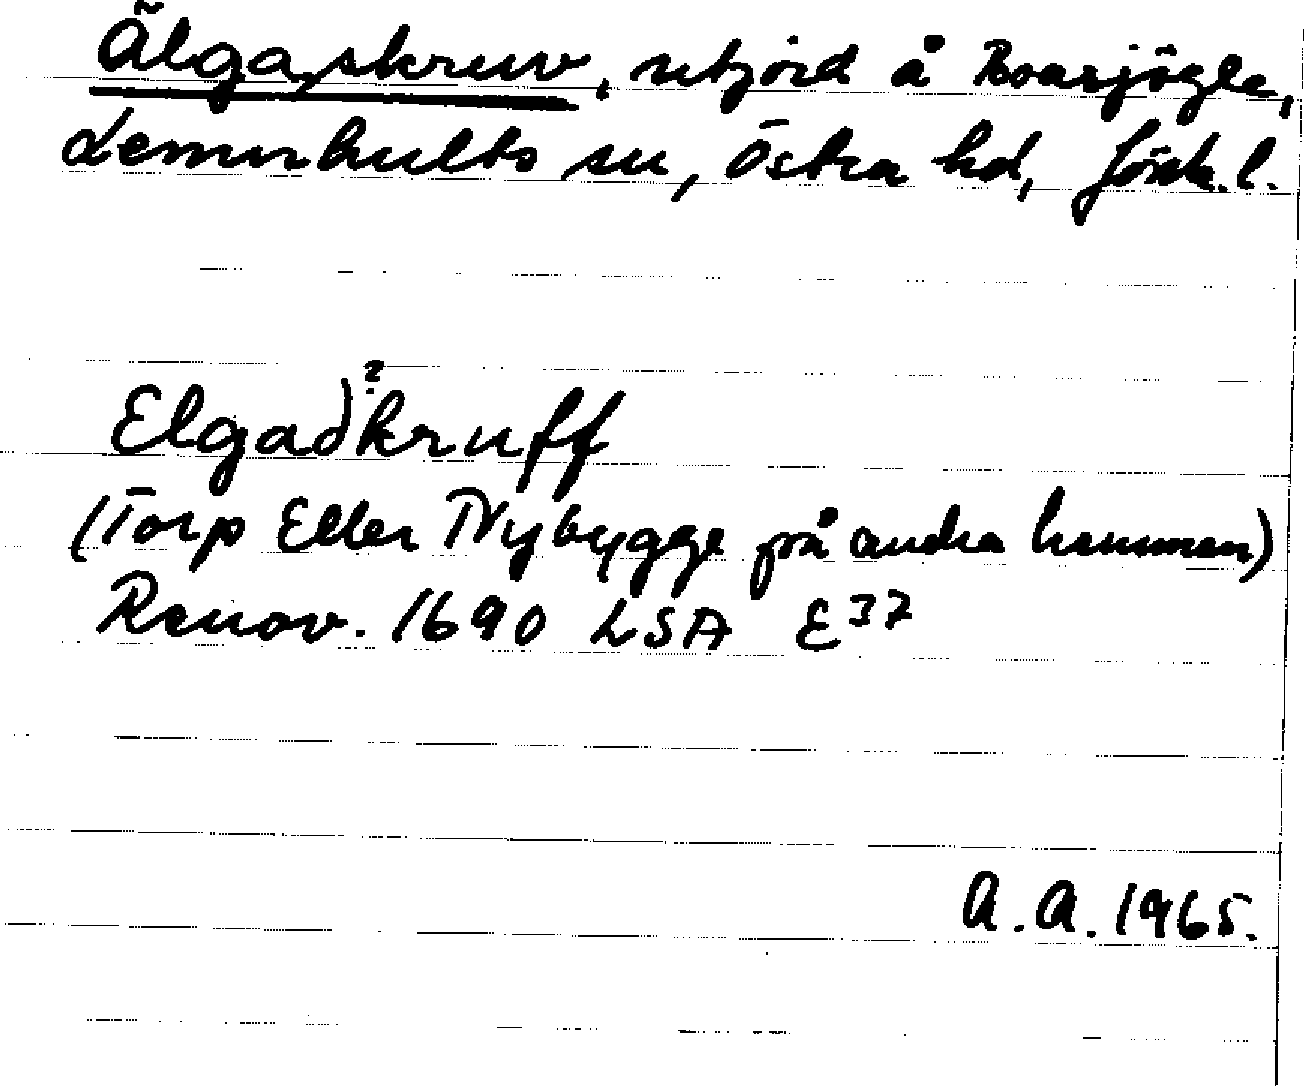 Älgaskruv, utjord å Boarjögle,
Lemnhults sn, Östra hd, Jönk. l.
Elgadkruff
?
(Torp Eller Nybygge på andra hemman)
Renov. 1690 LSA E37
A.A. 1965.